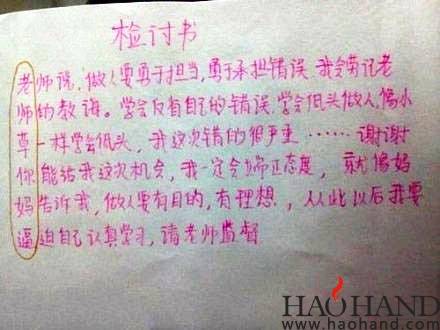 检讨书
老师说,做人要勇于担当,勇于承担错误 我会劳记老
师的教诲。学会反省自己的错误.学会低头做人,像小
草一样学会低头,我这次错的很严重……谢谢
你能给我这次机会,我一定会端正态度,就像妈
妈告诉我,做人要有目的,有理想,从此以后我要
逼迫自己认真学习,请老师监督
HAOHAND
www.haohand.com